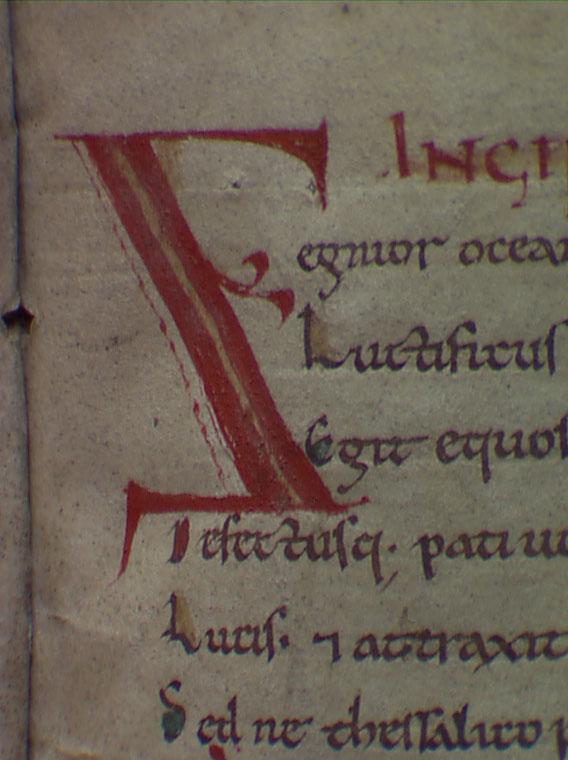 INCI
Segnior ocea
Luctificus
Egit equos
Defectusq; pati uo
Lucis. ⁊ attraxit
Sed ne thessalico p